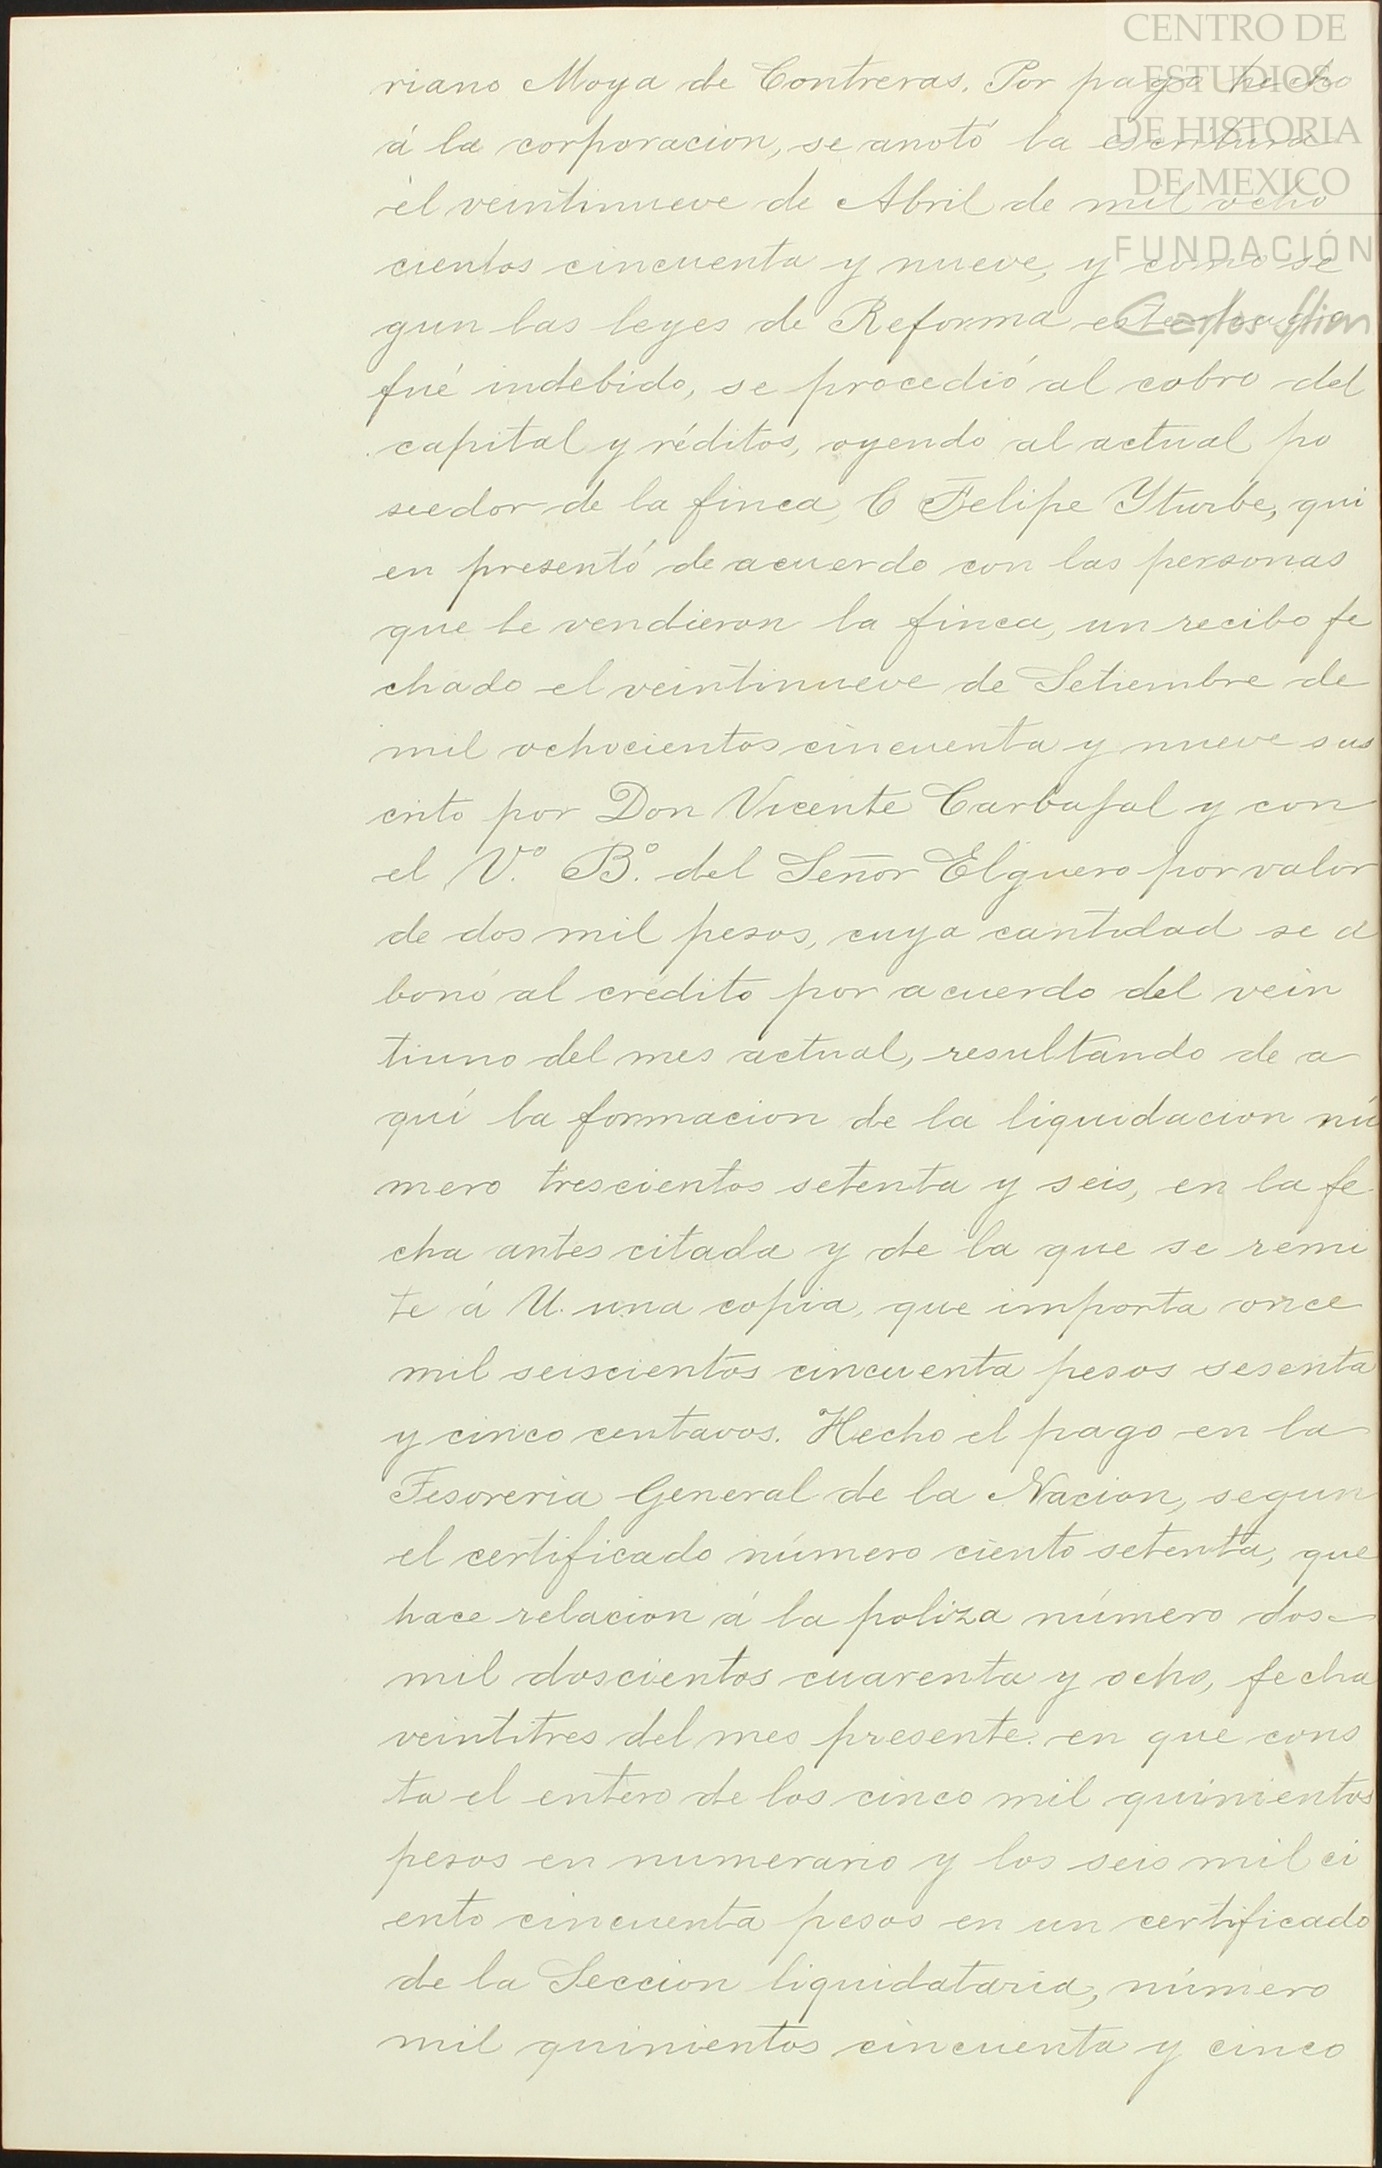 CENTRO DE
ESTUDIOS
DE HISTORIA
DE MEXICO
FUNDACIÓN
Carlos Slim
riano Moya de Contreras. Por pago hecho
á la corporacion, se anotó la escritura
el veintinueve de Abril de mil ocho
cientos cincuenta y nueve, y como se
gun las leyes de Reforma este pago
fué indebido, se procedió al cobro del
capital y réditos, oyendo al actual po
seedor de la finca, C Felipe Yturbe, qui
en presentó de acuerdo con las personas
que le vendieron la finca, un recibo fe
chado el veintinueve de Setiembre de
mil ochocientos cincuenta y nueve sus
crito por Don Vicente Carbajal y con
el V.º B.º del Señor Elguero por valor
de dos mil pesos, cuya cantidad se a
bonó al crédito por acuerdo del vein
tiuno del mes actual, resultando de a
quí la formacion de la liquidacion nú
mero trescientos setenta y seis, en la fe
cha antes citada y de la que se remi
te á U. una copia, que importa once
mil seiscientos cincuenta pesos sesenta
y cinco centavos. Hecho el pago en la
Tesoreria General de la Nacion, segun
el certificado número ciento setenta, que
hace relacion á la poliza número dos
mil doscientos cuarenta y ocho, fecha
veintitres del mes presente. en que cons
ta el entero de los cinco mil quinientos
pesos en numerario y los seis mil ci
ento cincuenta pesos en un certificado
de la Seccion liquidataria, número
mil quinientos cincuenta y cinco